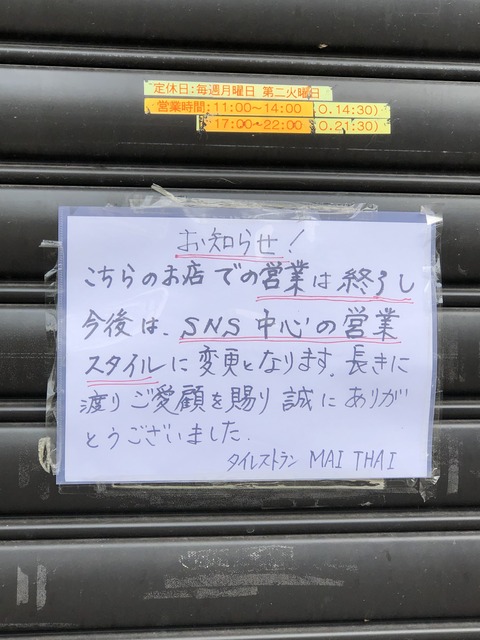 定休日:毎週月曜日 第二火曜日
営業時間:11:00〜14:00 (O.14:30)
17:00〜22:00 (O.21:30)
お知らせ!
こちらのお店での営業は終了し
今後は、SNS中心の営業
スタイルに変更となります。長きに
渡りご愛顧を賜り誠にありが
とうございました.
タイレストラン MAI THAI